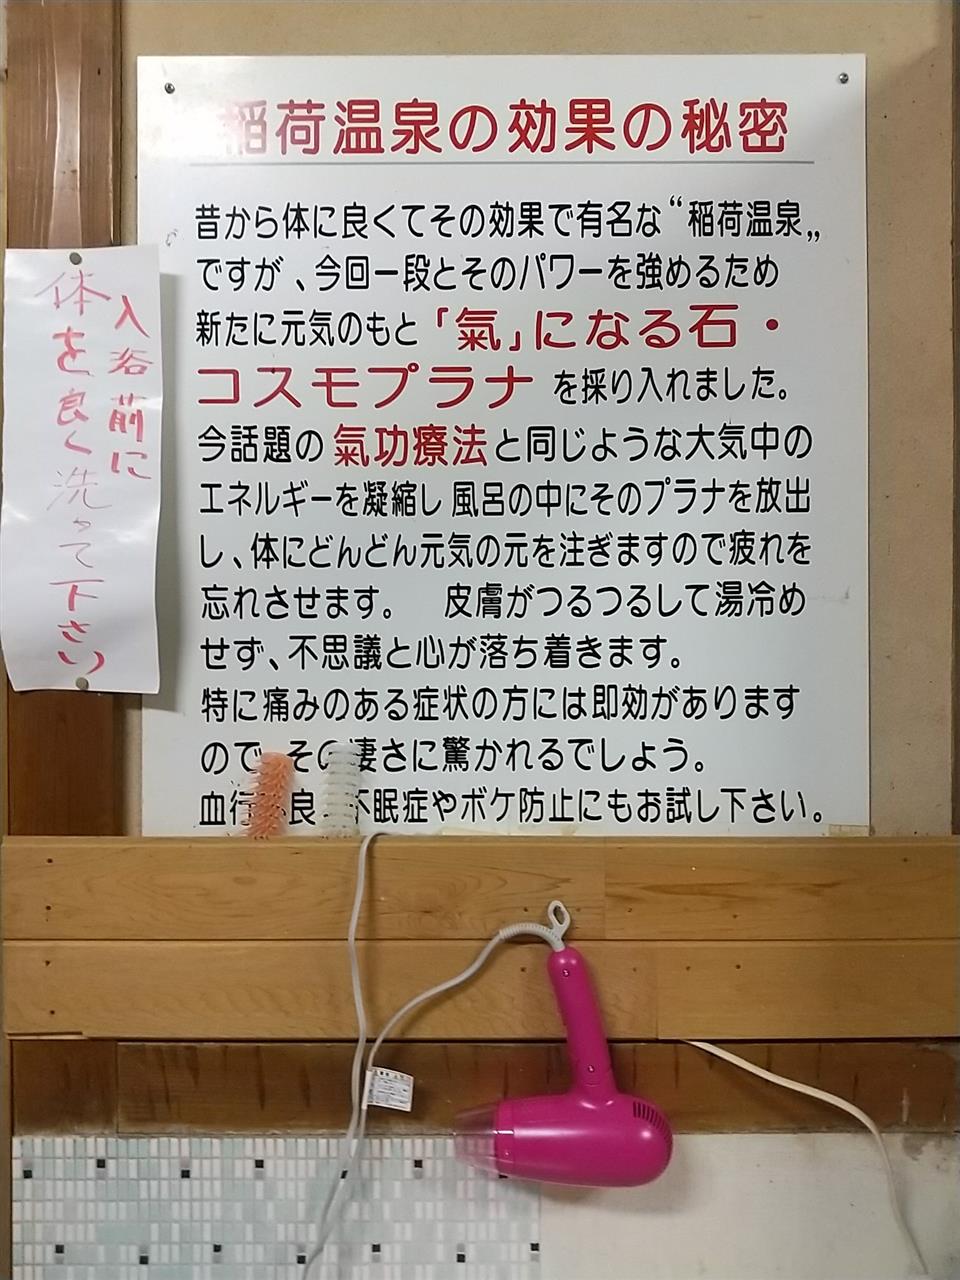 稲荷温泉の効果の秘密
昔から体に良くてその効果で有名な“稲荷温泉„
ですが、今回一段とそのパワーを強めるため
新たに元気のもと「氣」になる石・
コスモプラナを採り入れました。
今話題の氣功療法と同じような大気中の
エネルギーを凝縮し風呂の中にそのプラナを放出
し、体にどんどん元気の元を注ぎますので疲れを
忘れさせます。　皮膚がつるつるして湯冷め
せず、不思議と心が落ち着きます。
特に痛みのある症状の方には即効があります
ので、その凄さに驚かれるでしょう。
血行不良、不眠症やボケ防止にもお試し下さい。
入浴前に
体を良く洗って下さい